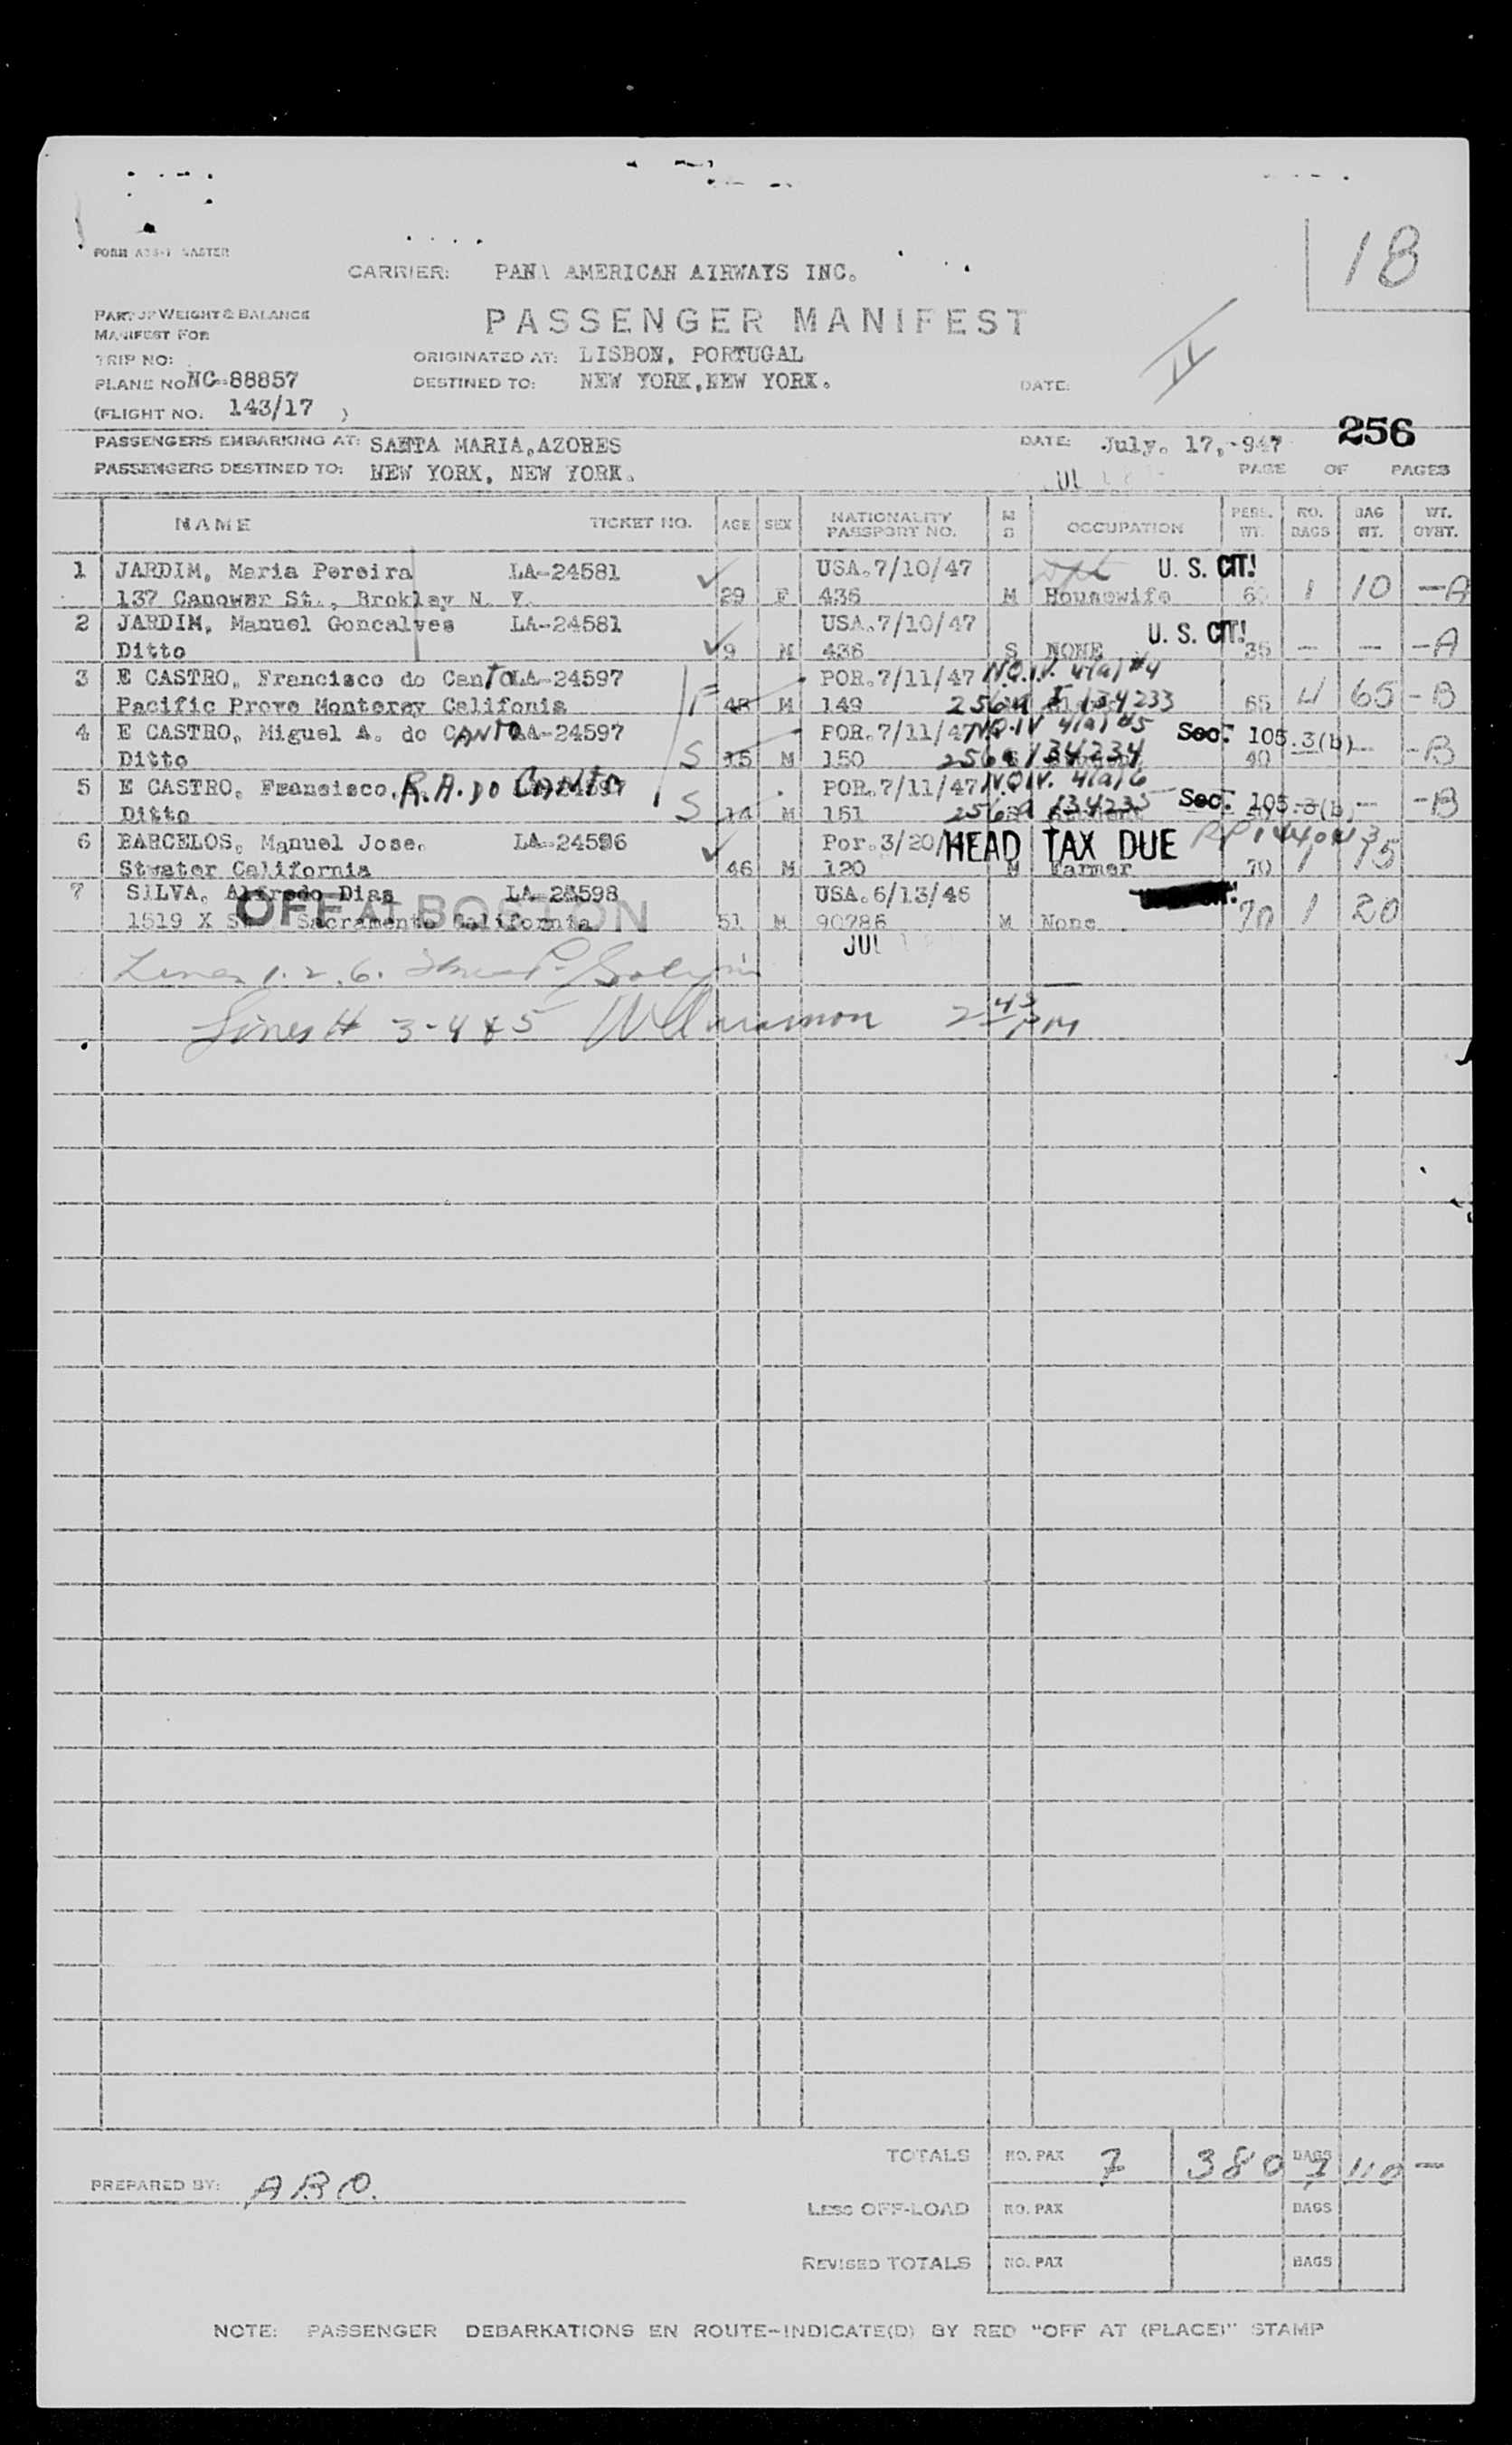 18
FORM ATS-1 MASTER
CARRIER: PANA AMERICAN AIRWAYS INC.
PART OF WEIGHT & BALANCE
MANIFEST FOR
PASSENGER MANIFEST
II
TRIP NO:
ORIGINATED AT: LISBON, PORTUGAL
PLANE NO NC-88857
DESTINED TO: NEW YORK, NEW YORK.
DATE:
(FLIGHT NO. 143/17 )
PASSENGERS EMBARKING AT: SANTA MARIA, AZORES
DATE: July. 17,-947
256
PASSENGERS DESTINED TO: NEW YORK, NEW YORK.
JUL
PAGE OF PAGES
NAME TICKET NO. AGE SEX NATIONALITY PASSPORT NO. M S OCCUPATION PERS. WT. NO. BAGS BAG WT. WT. OVBT.
1 JARDIM, Maria Pereira LA-24581 USA.7/10/47 U. S. CIT!
137 Canower St., Broklay N. Y. 29 F 436 M Housewife 1 10 -A
2 JARDIM, Manuel Goncalves LA-24581 USA.7/10/47 U. S. CIT!
Ditto 9 M 436 S NONE 35 - - -A
3 E CASTRO, Francisco do Canto LA-24597 POR.7/11/47 N.Q.I.V. 4(a) #4
Pacific Prove Monteray Califonia F M 149 256a I 134233 65 4 65 -B
4 E CASTRO, Miguel A. do CANTO LA-24597 POR.7/11/47 N.Q.IV 4(a) #5 Sec. 105.3(b)
Ditto S 15 M 150 256a 134234 40 - -B
5 E CASTRO, Fransisco, R.A. DO CANTO 24597 POR.7/11/47 N.Q.IV. 4(a) 6
Ditto S 14 M 151 256a 134235 Sec. 105.3(b) - -B
6 BARCELOS, Manuel Jose. LA-24596 Por.3/20/ HEAD TAX DUE
Stwater California 46 M 120 M Farmer 70 1 15
7 SILVA, Alfredo Dias LA 24598 USA.6/13/46
OFF AT BOSTON
1519 X St Sacramento California 51 M 90786 M None 70 1 20
JUL
Lines 1. 2. 6.
Lines # 3-4 & 5 2 43 PM
TOTALS NO. PAX 7 380 BAGS 7 110 -
PREPARED BY: ARO.
LESS OFF-LOAD NO. PAX BAGS
REVISED TOTALS NO. PAX BAGS
NOTE: PASSENGER DEBARKATIONS EN ROUTE-INDICATE(D) BY RED "OFF AT (PLACE)" STAMP